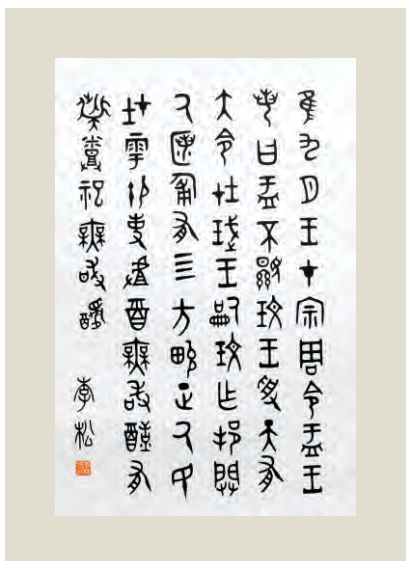 隹九月王才宗周令盂王
若曰盂不顯玟王受天有
大令在珷王嗣玟乍邦闢
氒匿匍有四方畯正氒民
在雩御事𠭯酉無敢酖有
柴烝祀無敢醻
李松